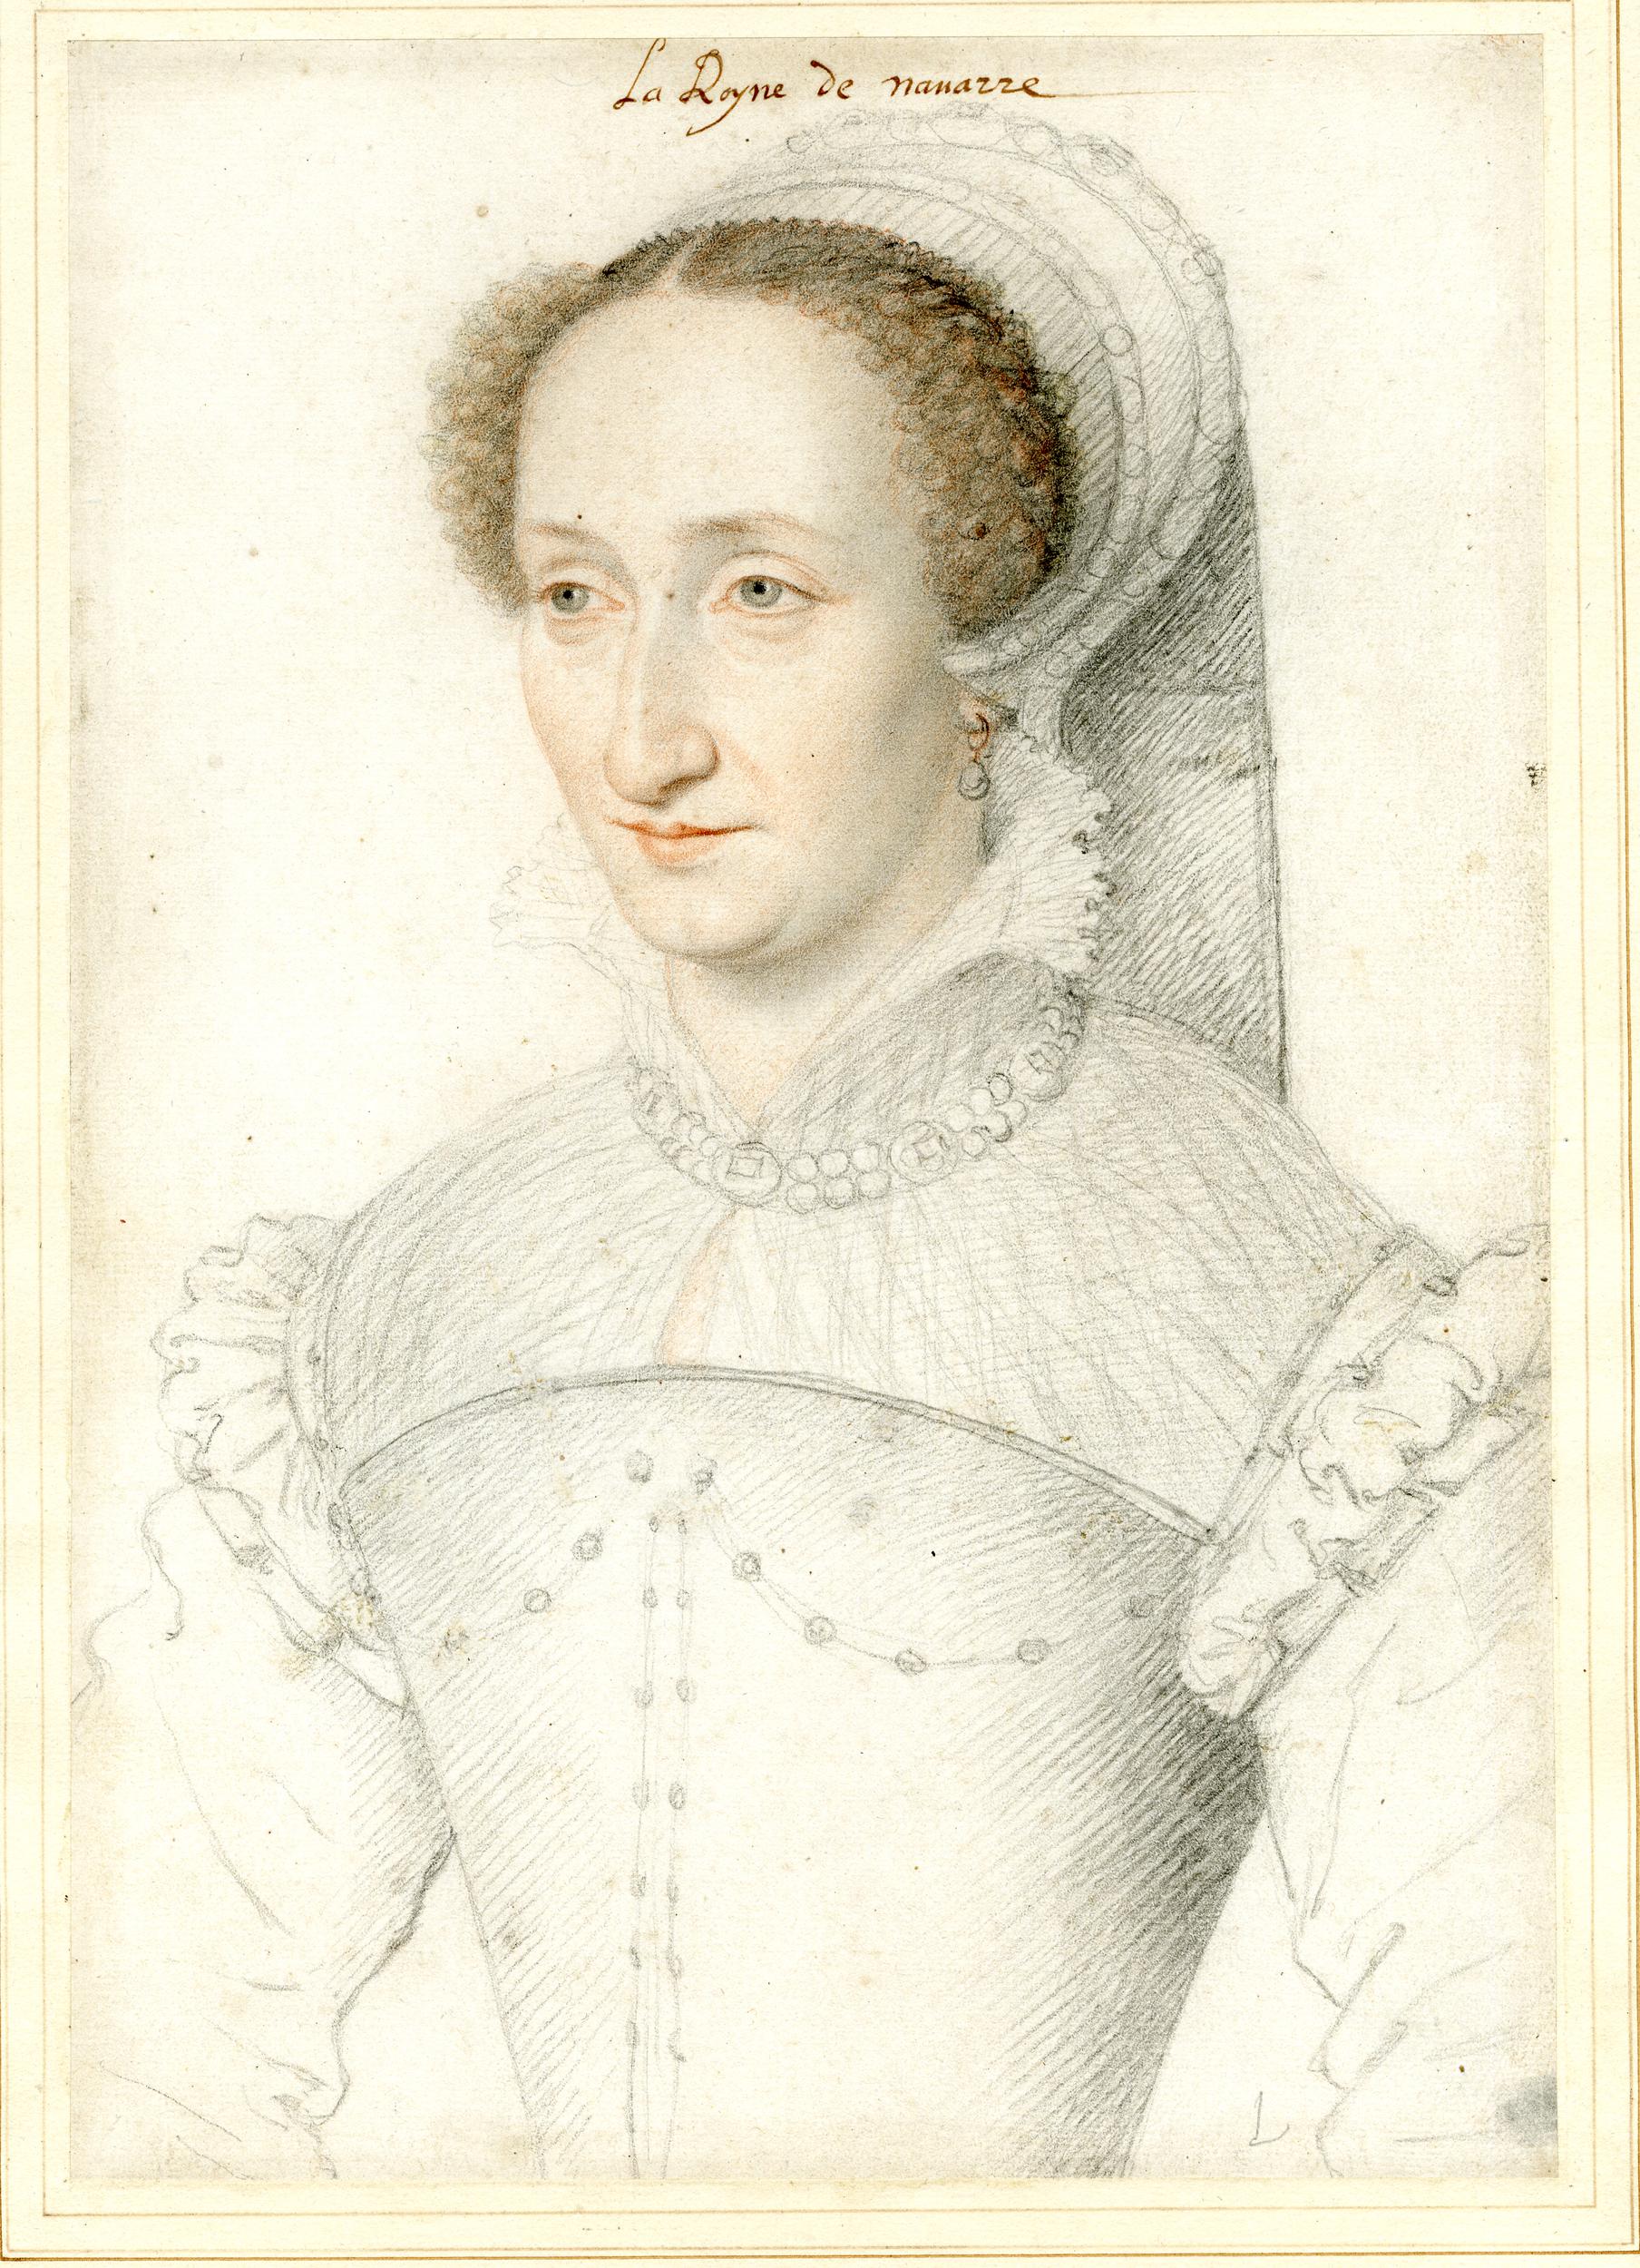 La Royne de nauarre
L